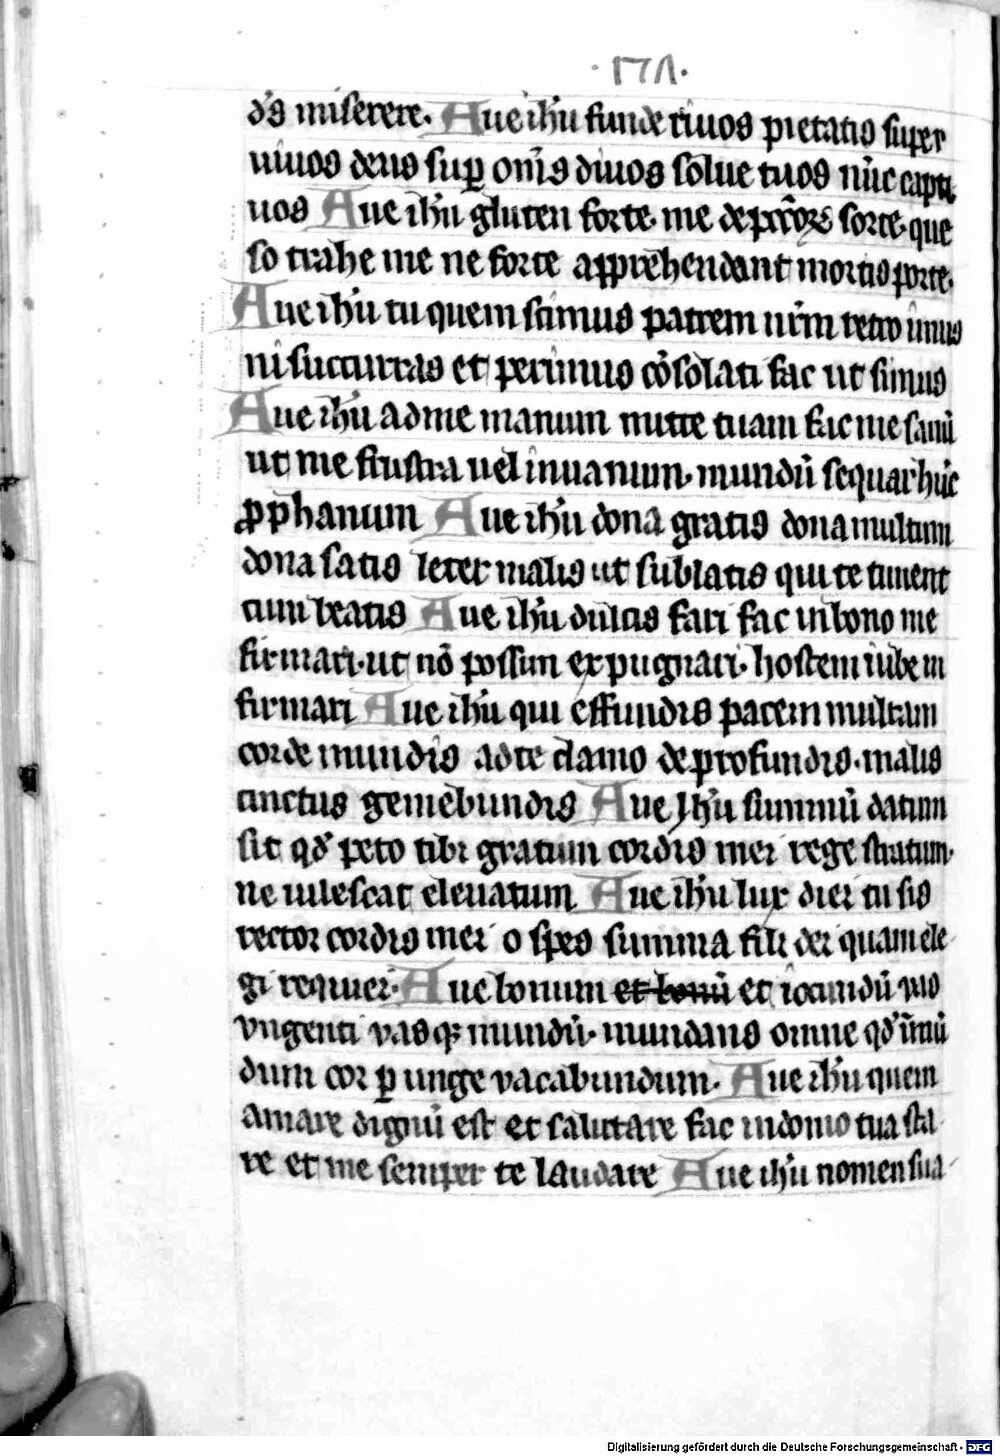 ·171·
dꝰs miserere. Aue ihu funde riuos pietatis super
uiuos deus sup̲ oms diuos solue tuos nūc capti
uos Aue ihu gluten forte. me de pctōꝝ sorte. que
so trahe me ne forte apprehendant mortis porte.
Aue ihu tu quem scimus patrem nrm retro imus
ni succurras et perimus cōsolati fac ut simus
Aue ihu ad me manum mitte tuam fac me sanū
ut me frustra uel inuanum. mundū sequar hūc
ꝓphanum Aue ihu dona gratis dona multum
dona satis leter malis ut sublatis qui te timent
cum beatis Aue ihu dulcis fari fac in bono me
firmari. ut nō possim expugnari. hostem iube in
firmari Aue ihu qui effundis pacem multam
corde mundis ad te clamo de profundis. malis
cinctus gemebundis Aue Jhu summū datum
sit qd peto tibi gratum cordis mei rege stratum.
ne uilescat eleuatum Aue ihu lux diei tu sis
rector cordis mei o spes summa fili dei quam ele
gi requiei. Aue bonum et bonū et iocundū uio
vngenti vasqꝫ mundū. mundans omne qd īmū
dum cor ꝑ unge vacabundum. Aue ihu quem
amare dignū est et salutare fac in domo tua sta
re et me semper te laudare Aue ihu nomen sua
Digitalisierung gefördert durch die Deutsche Forschungsgemeinschaft - DFG